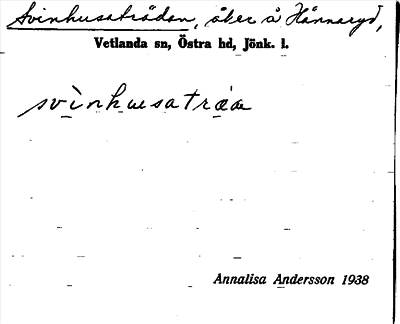 Svinhusatrådan, åker å Hånnaryd,
Vetlanda sn, Östra hd, Jönk. l.
svìnhusatráa
Annalisa Andersson 1938